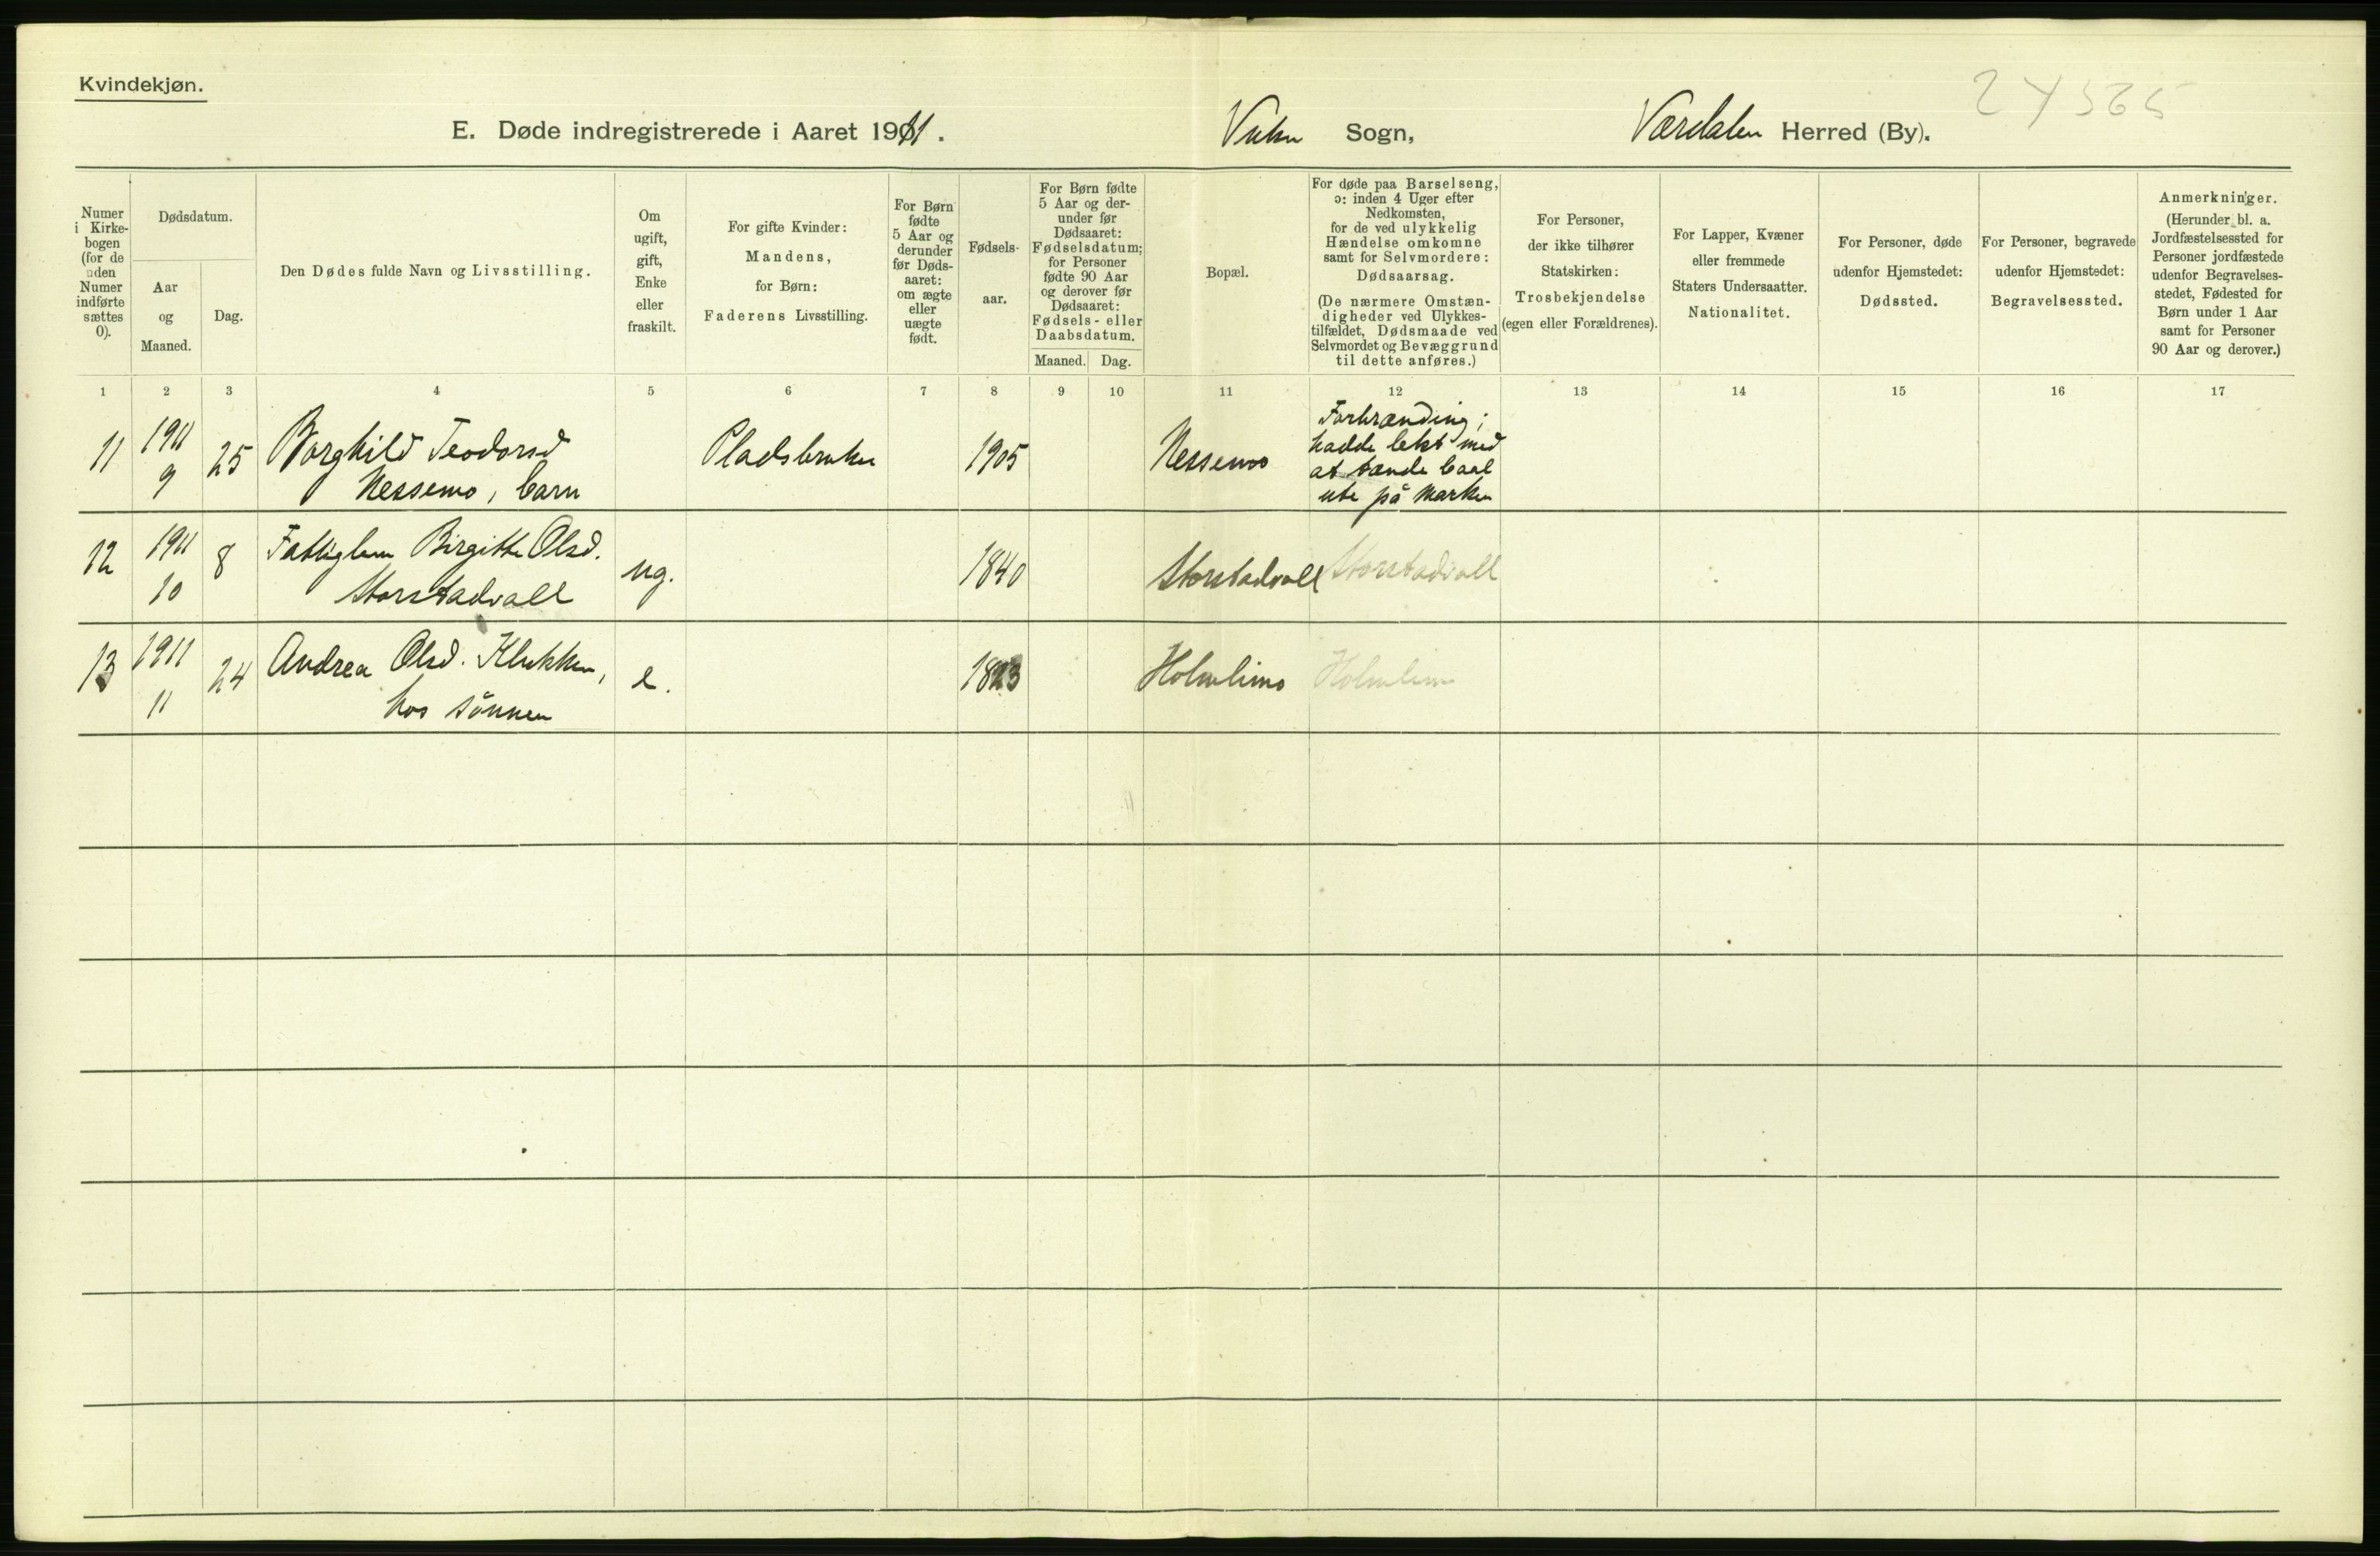 Kvindekjøn.
24565
E. Døde indregistrerede i Aaret 1911. Vuku Sogn, Værdalen Herred (By).
Numer i Kirkebogen (for de uden Numer indførte sættes 0).
Dødsdatum.
Aar og Maaned.
Dag.
Den Dødes fulde Navn og Livsstilling.
Om ugift, gift, Enke eller fraskilt.
For gifte Kvinder: Mandens, for Børn: Faderens Livsstilling.
For Børn fødte 5 Aar og derunder før Dødsaaret: om ægte eller uægte født.
Fødselsaar.
For Børn fødte 5 Aar og derunder før Dødsaaret: Fødselsdatum; for Personer fødte 90 Aar og derover før Dødsaaret: Fødsels- eller Daabsdatum.
Maaned. Dag.
Bopæl.
For døde paa Barselseng, ɔ: inden 4 Uger efter Nedkomsten, for de ved ulykkelig Hændelse omkomne samt for Selvmordere: Dødsaarsag.
(De nærmere Omstændigheder ved Ulykkestilfældet, Dødsmaade ved Selvmordet og Bevæggrund til dette anføres.)
For Personer, der ikke tilhører Statskirken: Trosbekjendelse (egen eller Forældrenes).
For Lapper, Kvæner eller fremmede Staters Undersaatter. Nationalitet.
For Personer, døde udenfor Hjemstedet: Dødssted.
For Personer, begravede udenfor Hjemstedet: Begravelsessted.
Anmerkninger.
(Herunder bl. a. Jordfæstelsessted for Personer jordfæstede udenfor Begravelsesstedet, Fødested for Børn under 1 Aar samt for Personer 90 Aar og derover.)
1 2 3 4 5 6 7 8 9 10 11 12 13 14 15 16 17
11 1911 9 25 Borghild Teodorsd Nessemo, barn Pladsbruker 1905 Nessemo
Forbrænding;
hadde lekt med
at tænde baal
ute på marken
12 1911 10 8 Fattiglem Birgitte Olsd.
Storstadvall ug. 1840 Storstadvall Storstadvall
13 1911 11 24 Andrea Olsd. Klukken,
hos sönnen e. 1823 Holmlimo Holmlimo